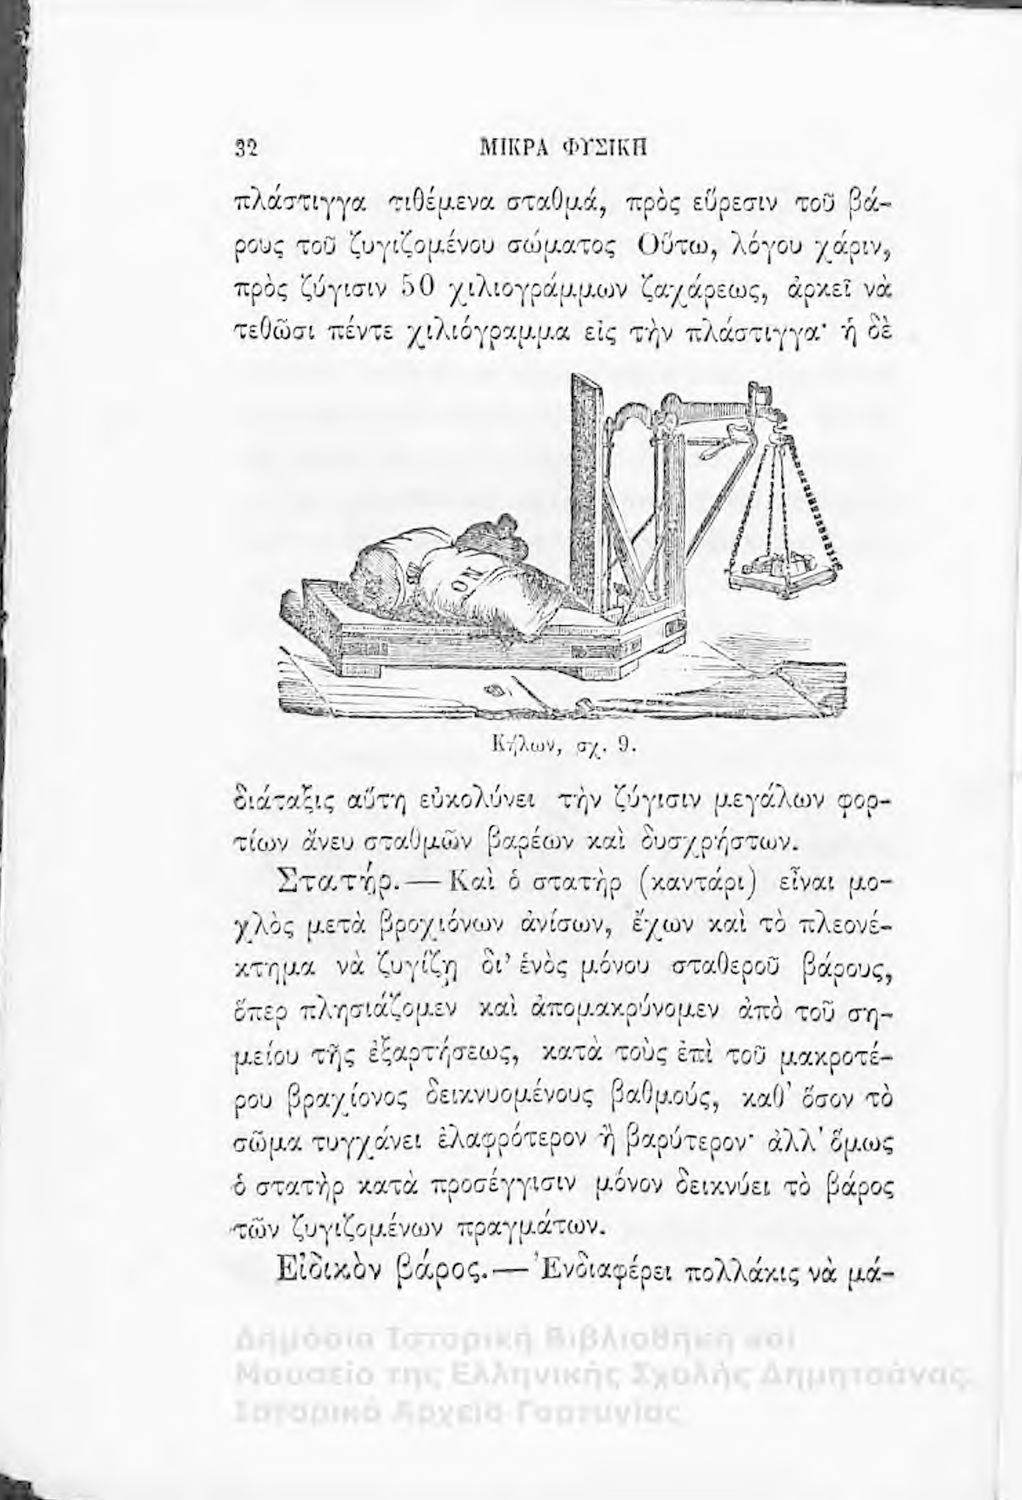 32 ΜΙΚΡΑ ΦΥΣΙΚΗ
πλάστιγγα τιθέμενα σταθμά, πρὸς εὕρεσιν τοῦ βά-
ρους τοῦ ζυγιζομένου σώματος Οὕτω, λόγου χάριν,
πρὸς ζύγισιν 50 χιλιογράμμων ζαχάρεως, ἀρκεῖ νὰ
τεθῶσι πέντε χιλιόγραμμα εἰς τὴν πλάστιγγα· ἡ δὲ
ΝΟ
Κήλων, σχ. 9.
διάταξις αὕτη εὐκολύνει τὴν ζύγισιν μεγάλων φορ-
τίων ἄνευ σταθμῶν βαρέων καὶ δυσχρήστων.
Στατήρ.— Καὶ ὁ στατὴρ (καντάρι) εἶναι μο-
χλὸς μετὰ βροχιόνων ἀνίσων, ἔχων καὶ τὸ πλεονέ-
κτημα νὰ ζυγίζῃ δι' ἑνὸς μόνου σταθεροῦ βάρους,
ὅπερ πλησιάζομεν καὶ ἀπομακρύνομεν ἀπὸ τοῦ ση-
μείου τῆς ἐξαρτήσεως, κατὰ τοὺς ἐπὶ τοῦ μακροτέ-
ρου βραχίονος δεικνυομένους βαθμούς, καθ' ὅσον τὸ
σῶμα τυγχάνει ἐλαφρότερον ἢ βαρύτερον· ἀλλ' ὅμως
ὁ στατὴρ κατὰ προσέγγισιν μόνον δεικνύει τὸ βάρος
τῶν ζυγιζομένων πραγμάτων.
Εἰδικὸν βάρος.— Ἐνδιαφέρει πολλάκις νὰ μά-
Δημόσια Ιστορική Βιβλιοθήκη και
Μουσείο της Ελληνικής Σχολής Δημητσάνας.
Ιστορικό Αρχείο Γορτυνίας